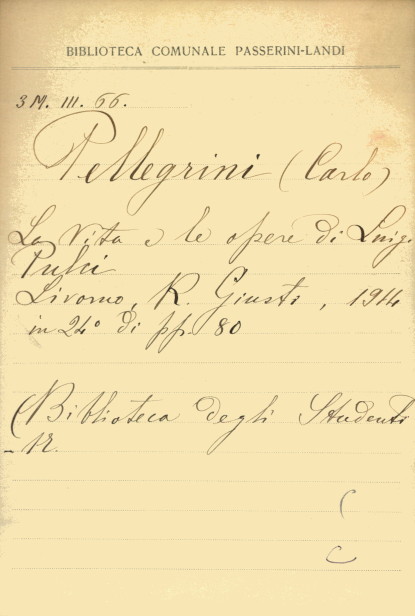 BIBLIOTECA COMUNALE PASSERINI-LANDI
3 M. III. 66.
Pellegrini (Carlo)
La vita e le opere di Luigi
Pulci
Livorno, R. Giusti, 1914
in 24° di pp. 80
(Biblioteca degli Studenti